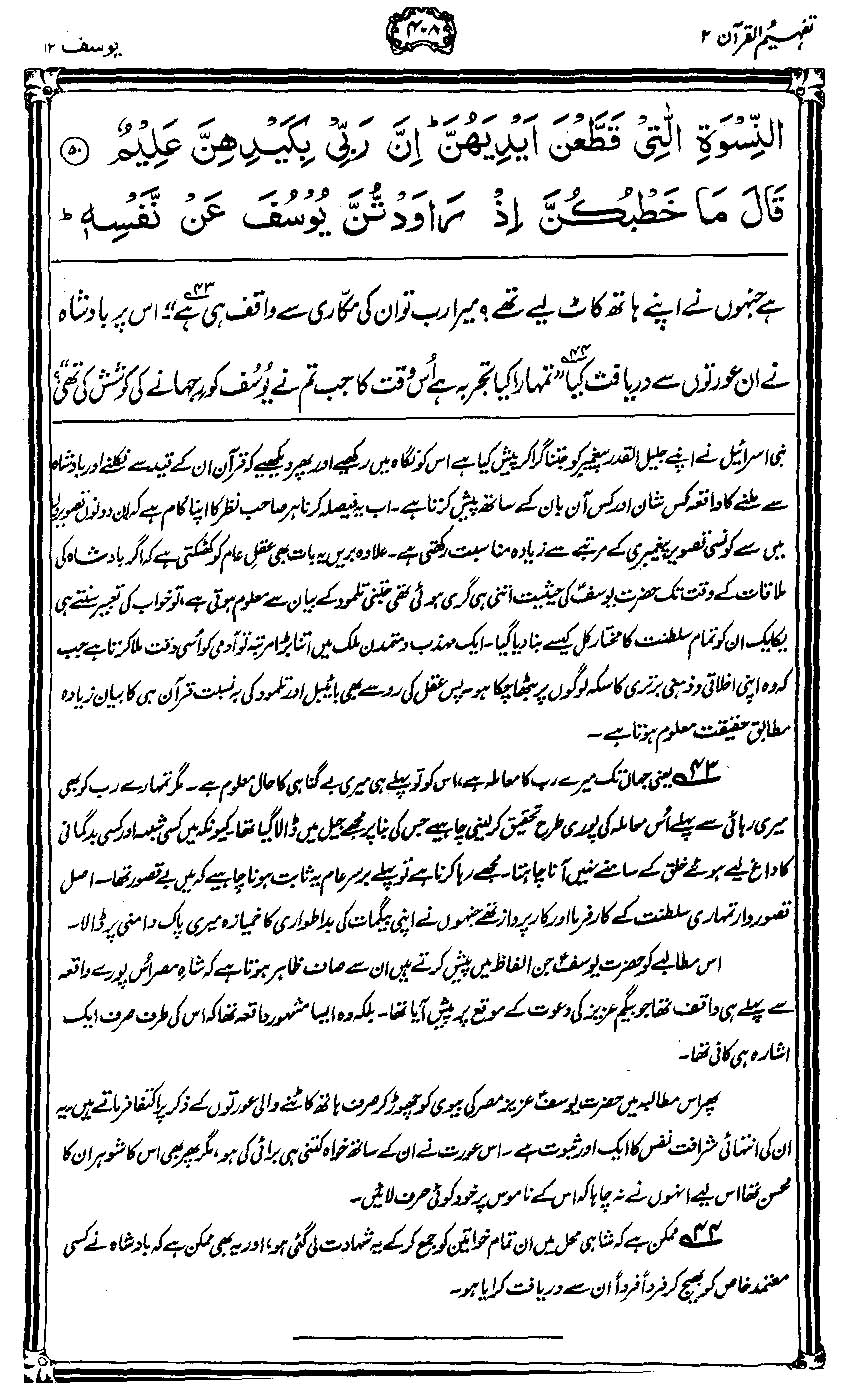 تفہیم القرآن ۲
۴۰۸
یوسف ۱۲
النِّسْوَةِ الّٰتِیْ قَطَّعْنَ اَیْدِیَهُنَّ ؕ اِنَّ رَبِّیْ بِكَیْدِهِنَّ عَلِیْمٌ ﴿۵۰﴾
قَالَ مَا خَطْبُكُنَّ اِذْ رَاوَدْتُّنَّ یُوْسُفَ عَنْ نَّفْسِهٖ ؕ
ہے جنہوں نے اپنے ہاتھ کاٹ لیے تھے؟ میرا رب تو ان کی مکّاری سے واقف ہی ہے"۴۳ اس پر بادشاہ
نے ان عورتوں سے دریافت کیا۴۴ "تمہارا کیا تجربہ ہے اُس وقت کا جب تم نے یُوسُف کو رِجھانے کی کوشش کی تھی؟"
بنی اسرائیل نے اپنے جلیل القدر پیغمبر کو جتنا گرا کر پیش کیا ہے اس کو نگاہ میں رکھیے اور پھر دیکھیے کہ قرآن ان کے قید سے نکلنے اور بادشاہ
سے ملنے کا واقعہ کس شان اور کس آن بان کے ساتھ پیش کرتا ہے۔ اب یہ فیصلہ کرنا ہر صاحب نظر کا اپنا کام ہے کہ ان دونوں تصویروں
میں سے کونسی تصویر پیغمبری کے مرتبے سے زیادہ مناسبت رکھتی ہے۔ علاوہ بریں یہ بات بھی عقلِ عام کو کھٹکتی ہے کہ اگر بادشاہ کی
ملاقات کے وقت تک حضرت یوسفؑ کی حیثیت اتنی ہی گری ہوئی تھی جتنی تلمود کے بیان سے معلوم ہوتی ہے، تو خواب کی تعبیر سنتے ہی
یکایک ان کو تمام سلطنت کا مختارِ کل کیسے بنا دیا گیا۔ ایک مہذب و متمدن ملک میں اتنا بڑا مرتبہ تو آدمی کو اُسی وقت ملا کرتا ہے جب
کہ وہ اپنی اخلاقی و ذہنی برتری کا سکہ لوگوں پر بٹھا چکا ہو۔ پس عقل کی رو سے بھی بائیبل اور تلمود کی بہ نسبت قرآن ہی کا بیان زیادہ
مطابقِ حقیقت معلوم ہوتا ہے۔
۴۳ یعنی جہاں تک میرے رب کا معاملہ ہے، اس کو تو پہلے ہی میری بے گناہی کا حال معلوم ہے۔ مگر تمہارے رب کو بھی
میری رہائی سے پہلے اُس معاملہ کی پوری طرح تحقیق کر لینی چاہیے جس کی بنا پر مجھے جیل میں ڈالا گیا تھا۔ کیونکہ میں کسی شبہہ اور کسی بدگمانی
کا داغ لیے ہوئے خلق کے سامنے نہیں آنا چاہتا۔ مجھے رہا کرنا ہے تو پہلے برسرِعام یہ ثابت ہونا چاہیے کہ میں بے قصور تھا۔ اصل
قصور وار تمہاری سلطنت کے کارفرما اور کارپرداز تھے جنہوں نے اپنی بیگمات کی بداطواری کا خمیازہ میری پاک دامنی پر ڈالا۔
اس مطالبے کو حضرت یوسفؑ جن الفاظ میں پیش کرتے ہیں ان سے صاف ظاہر ہوتا ہے کہ شاہِ مصر اُس پورے واقعہ
سے پہلے ہی واقف تھا جو بیگم عزیز کی دعوت کے موقع پر پیش آیا تھا۔ بلکہ وہ ایسا مشہور واقعہ تھا کہ اس کی طرف صرف ایک
اشارہ ہی کافی تھا۔
پھر اس مطالبہ میں حضرت یوسفؑ عزیز مصر کی بیوی کو چھوڑ کر صرف ہاتھ کاٹنے والی عورتوں کے ذکر پر اکتفا فرماتے ہیں۔ یہ
ان کی انتہائی شرافت نفس کا ایک اور ثبوت ہے۔ اس عورت نے ان کے ساتھ خواہ کتنی ہی برائی کی ہو، مگر پھر بھی اس کا شوہر ان کا
محسن تھا اس لیے انہوں نے نہ چاہا کہ اس کے ناموس پر خود کوئی حرف لائیں۔
۴۴ ممکن ہے کہ شاہی محل میں ان تمام خواتین کو جمع کر کے یہ شہادت لی گئی ہو، اور یہ بھی ممکن ہے کہ بادشاہ نے کسی
معتمدِ خاص کو بھیج کر فرداً فرداً ان سے دریافت کرایا ہو۔